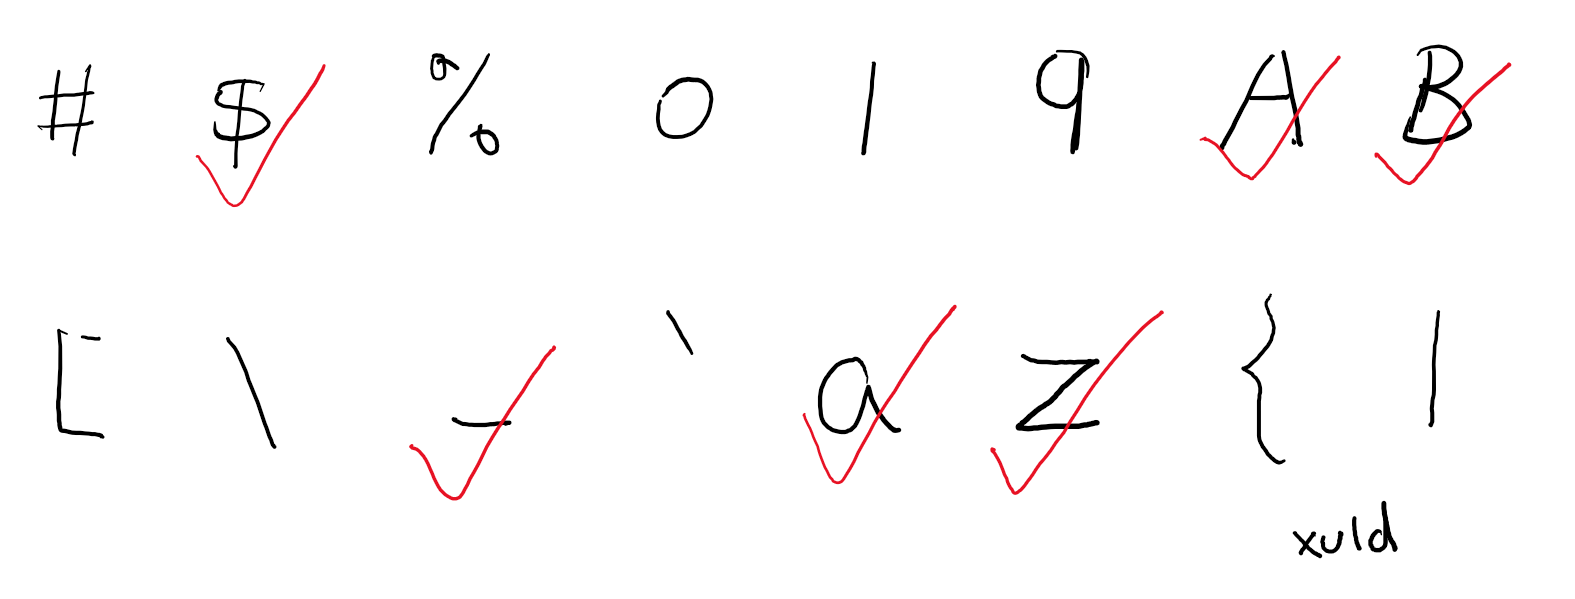 # $ % 0 1 9 A B
[ \ _ ` a z { |
xuld